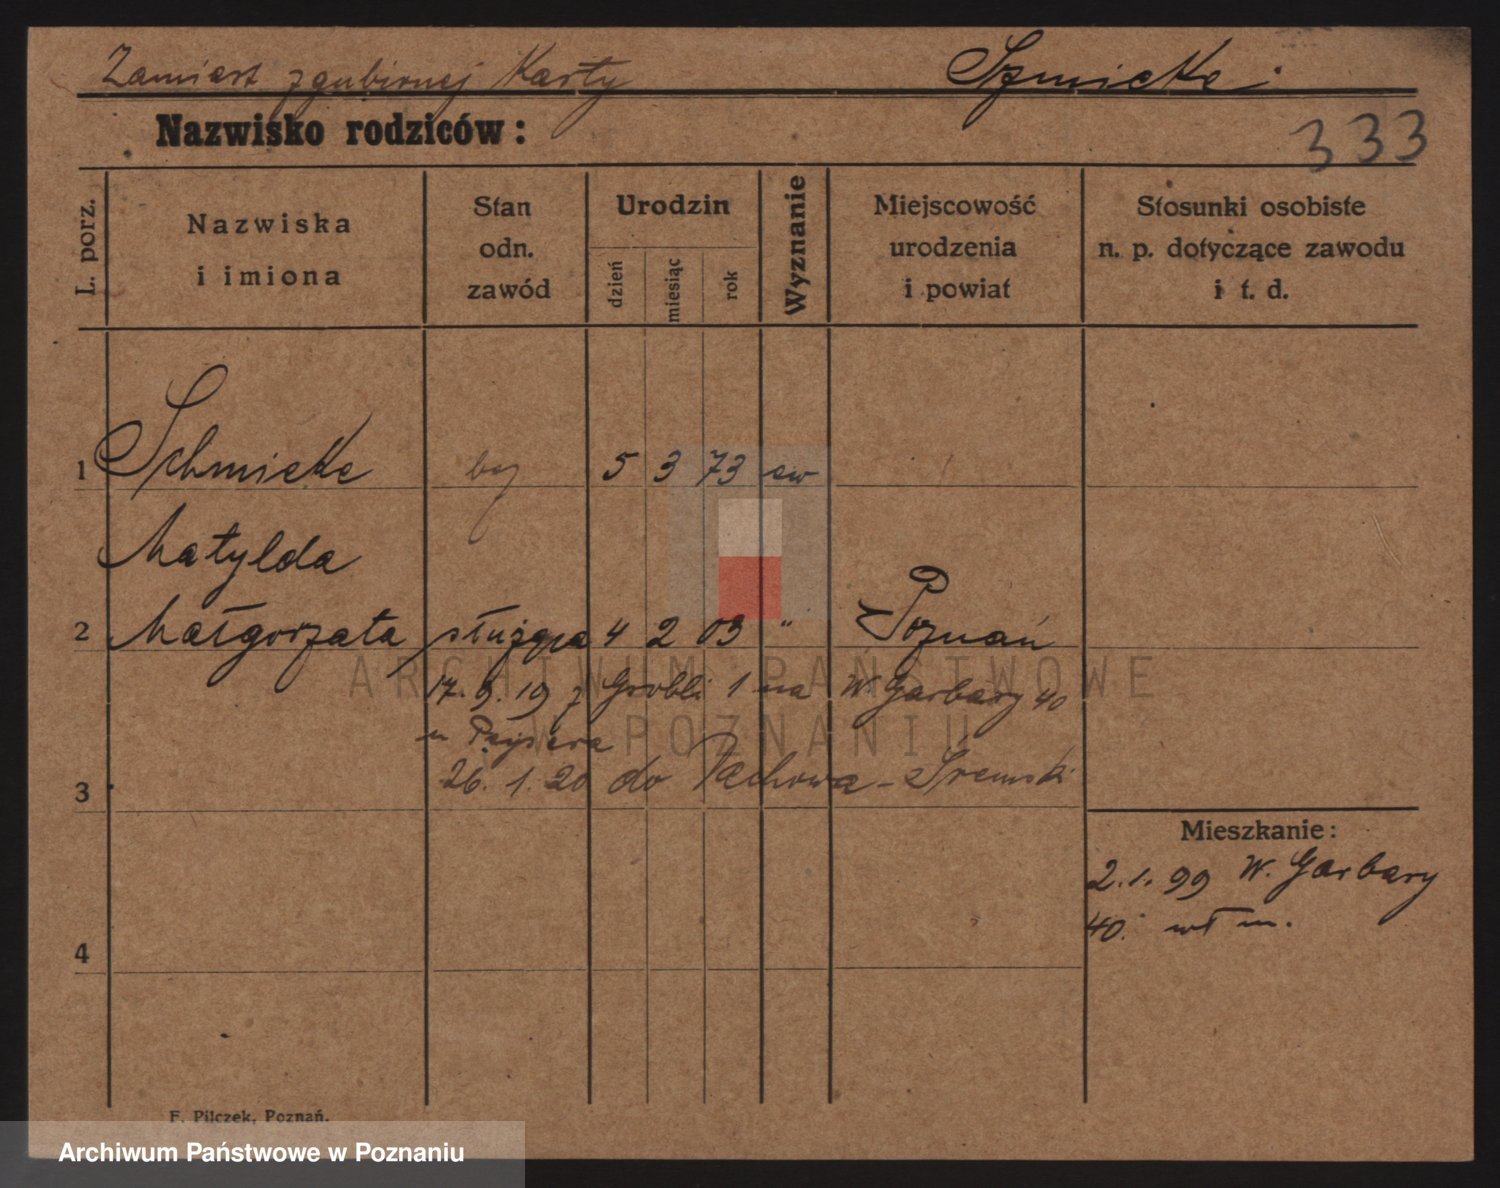 Zamiast zgubionej Karty
Szmielke
Nazwisko rodziców:
333
L. porz.
Nazwiska
i imiona
Stan
odn.
zawód
Urodzin
dzień
miesiąc
rok
Wyznanie
Miejscowość
urodzenia
i powiat
Stosunki osobiste
n. p. dotyczące zawodu
i t. d.
1 Schmielke 5 3 73 ew
Matylda
2 Małgorzata służąca 4 2 03 " Poznań
17. 9. 19 z Grobli 1 na W. Garbary 40
u
26. 1. 20 do - Śremski
3
Mieszkanie:
2. 1. 99 W. Garbary
40. wł m.
4
F. Pilczek, Poznań.
ARCHIWUM PAŃSTWOWE
W POZNANIU
Archiwum Państwowe w Poznaniu